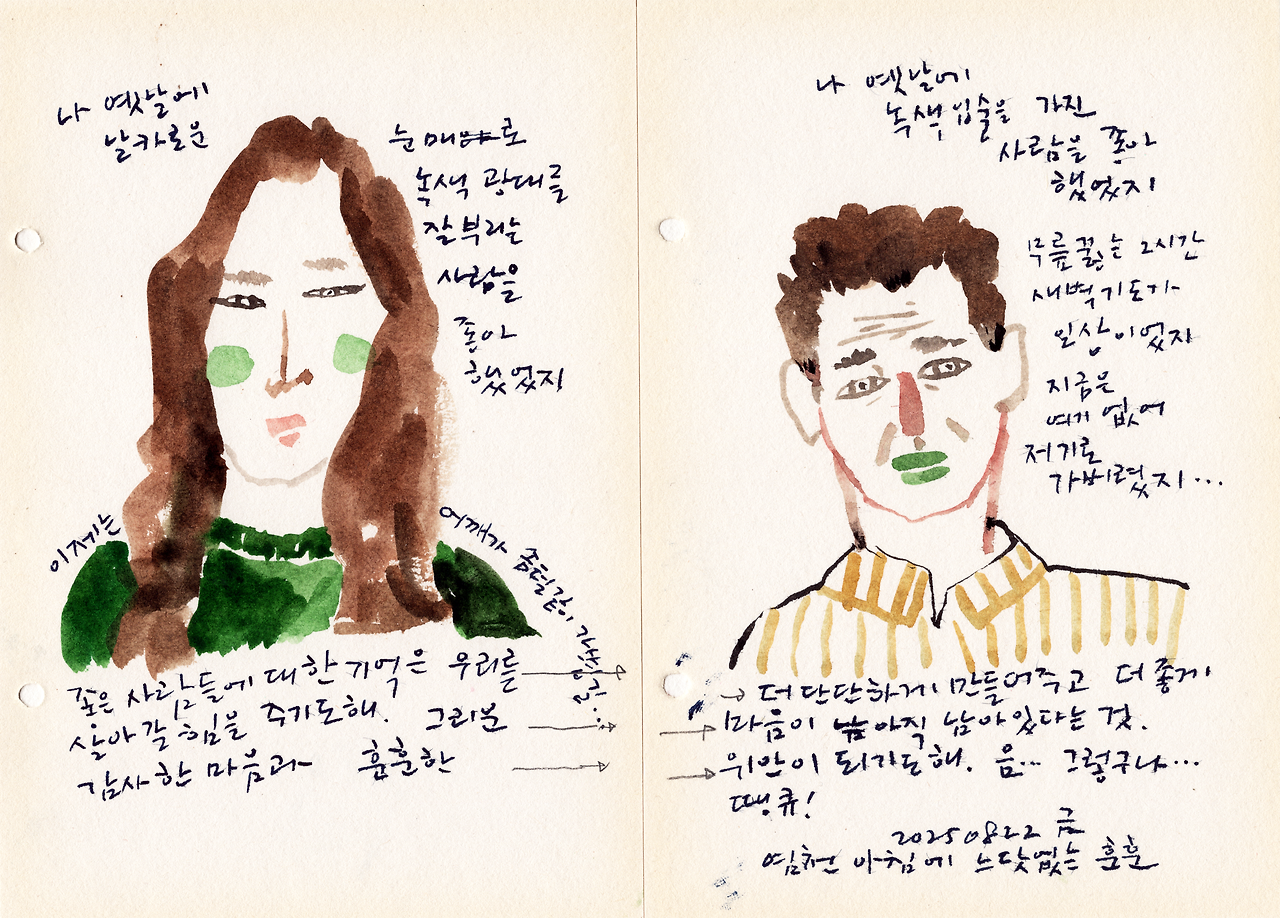 나 옛날에
날카로운
눈매로
녹색 광대를
잘부리는
사람을
좋아
했었지
이제는
어깨가 솜털같이 가벼워
좋은 사람들에 대한 기억은 우리를
살아갈 힘을 주기도해. 그리운
감사한 마음과 훈훈한
나 옛날에
녹색입술을 가진
사람을 좋아
했었지
무릎꿇는 2시간
새벽기도가
일상이었지
지금은
여기 없어
저기로
가버렸지...
더 단단하게 만들어주고 더 좋게
마음이 아직 남아있다는 것.
위안이 되기도해. 음... 그렇구나...
땡큐!
20250822 금
염천 아침에 느닷없는 훈훈